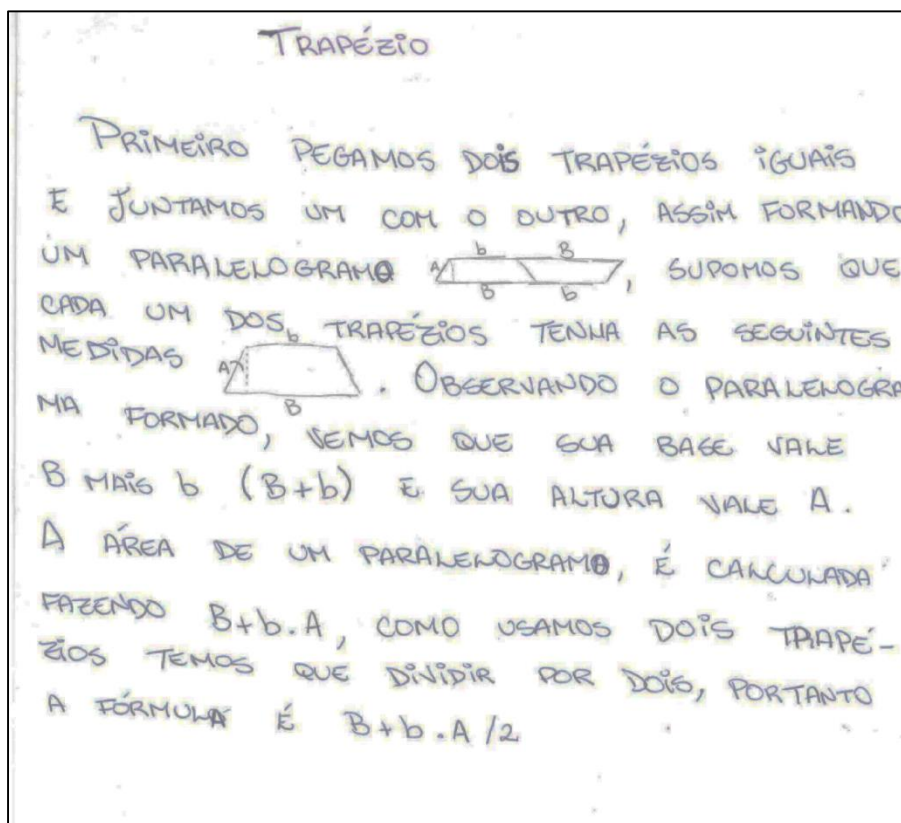 TRAPÉZIO
PRIMEIRO PEGAMOS DOIS TRAPÉZIOS IGUAIS
E JUNTAMOS UM COM O OUTRO, ASSIM FORMANDO
UM PARALELOGRAMO A b B B b , SUPOMOS QUE
CADA UM DOS TRAPÉZIOS TENHA AS SEGUINTES
MEDIDAS A b B . OBSERVANDO O PARALELOGRA
MA FORMADO, VEMOS QUE SUA BASE VALE
B MAIS b (B+b) E SUA ALTURA VALE A.
A ÁREA DE UM PARALELOGRAMO, É CALCULADA
FAZENDO B+b.A, COMO USAMOS DOIS TRAPÉ-
ZIOS TEMOS QUE DIVIDIR POR DOIS, PORTANTO
A FÓRMULA É B+b.A/2